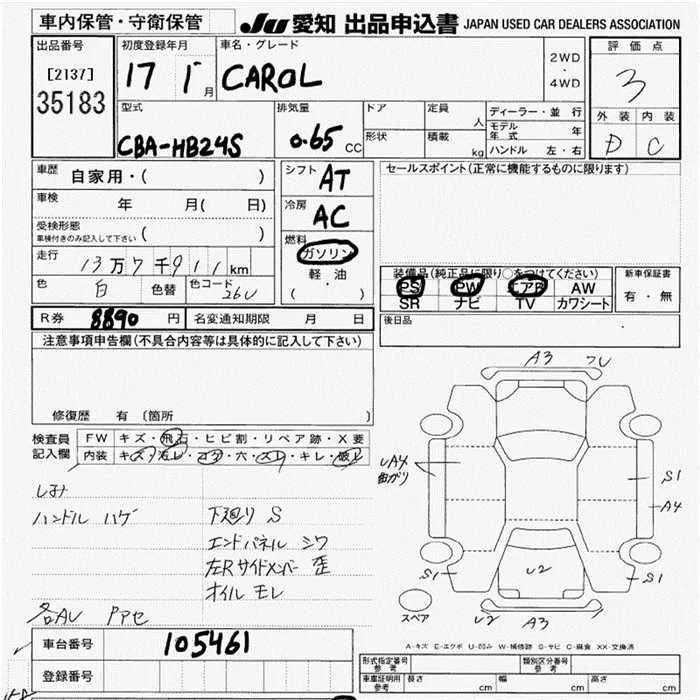 車内保管・守衛保管
JU 愛知 出品申込書 JAPAN USED CAR DEALERS ASSOCIATION
出品番号
[2137]
35183
初度登録年月
17 1 月
車名・グレード
CAROL
2WD
・
4WD
評価点
3
外装 内装
D C
型式
CBA-HB24S
排気量
0.65 CC
ドア
定員 人
形状
積載 kg
ディーラー・並行
モデル年式 年
ハンドル 左・右
車歴 自家用・( )
車検 年 月( 日)
受検形態
車検付きのみ記入して下さい ( )
走行 13万7千911 km
色 白 色替 色コード 26U
シフト AT
冷房 AC
燃料
ガソリン
軽・油
( ・ )
セールスポイント(正常に機能するものに限ります)
装備品(純正品に限り○をつけてください)
PS PW エアB AW
SR ナビ TV カワシート
新車保証書
有・無
R券 8890 円 名変通知期限 月 日
後日品
注意事項申告欄(不具合内容等は具体的に記入して下さい)
修復歴 有 〔箇所
検査員
記入欄
FW キズ・飛石・ヒビ割・リペア跡・X要
内装 キズ・汚レ・コゲ・穴・スレ・キレ・破レ
シミ
ハンドル ハゲ
下廻り S
エンドパネル シワ
左Rサイドメンバー 歪
オイル モレ
各AU PアセA3
UA4
曲がり
S1
A4
S1
U2
S1
スペア
U2
A3
A-キズ E-エクボ U-凹み W-補修跡 S-サビ C-腐食 XX-交換済
車台番号 105461
登録番号
形式指定番号
参考
類別区分番号
参考
車庫証明用
参考
長さ cm 幅 cm 高さ cm